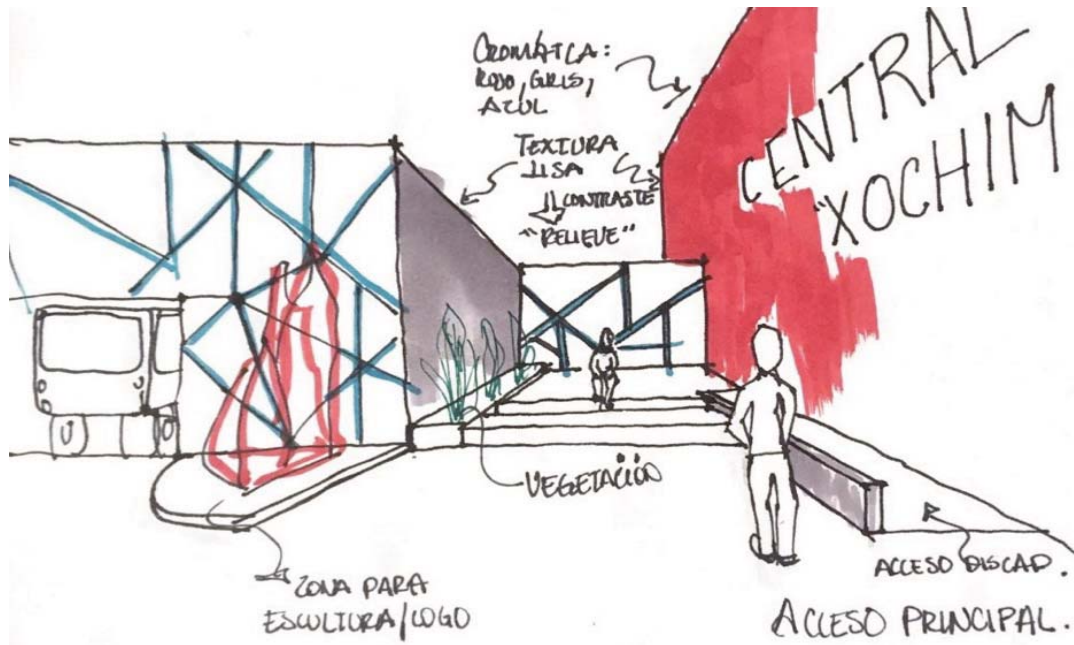 CROMÁTICA:
ROJO, GRIS,
AZUL
TEXTURA
LISA
CONTRASTE
"RELIEVE"
CENTRAL
"XOCHIM
VEGETACIÓN
ZONA PARA
ESCULTURA/LOGO
ACCESO DISCAP.
ACCESO PRINCIPAL.